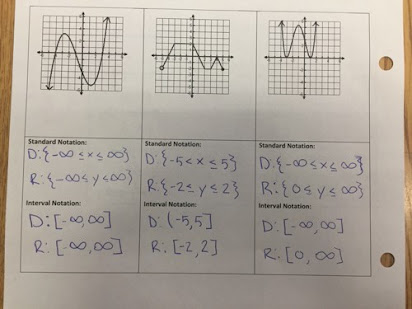 Standard Notation:
D:{-∞ ≤ x ≤ ∞}
R:{-∞ ≤ y ≤ ∞}
Interval Notation:
D: [-∞,∞]
R: [-∞,∞]
Standard Notation:
D:{-5 < x ≤ 5}
R{-2 ≤ y ≤ 2}
Interval Notation:
D: (-5,5]
R: [-2,2]
Standard Notation:
D:{-∞ ≤ x ≤ ∞}
R:{0 ≤ y ≤ ∞}
Interval Notation:
D: [-∞,∞]
R: [0, ∞]